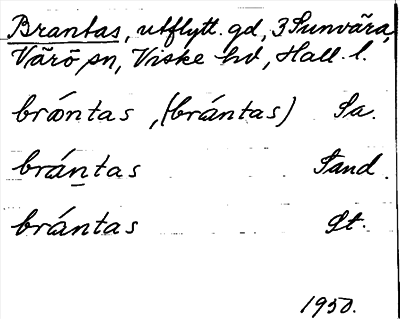 Brantas, utflytt. gd, 3 Sunvära,
Värö sn, Viske hd, Hall. l.
brántas, (brántas) Sa.
brántas Sand.
brántas St.
1950.